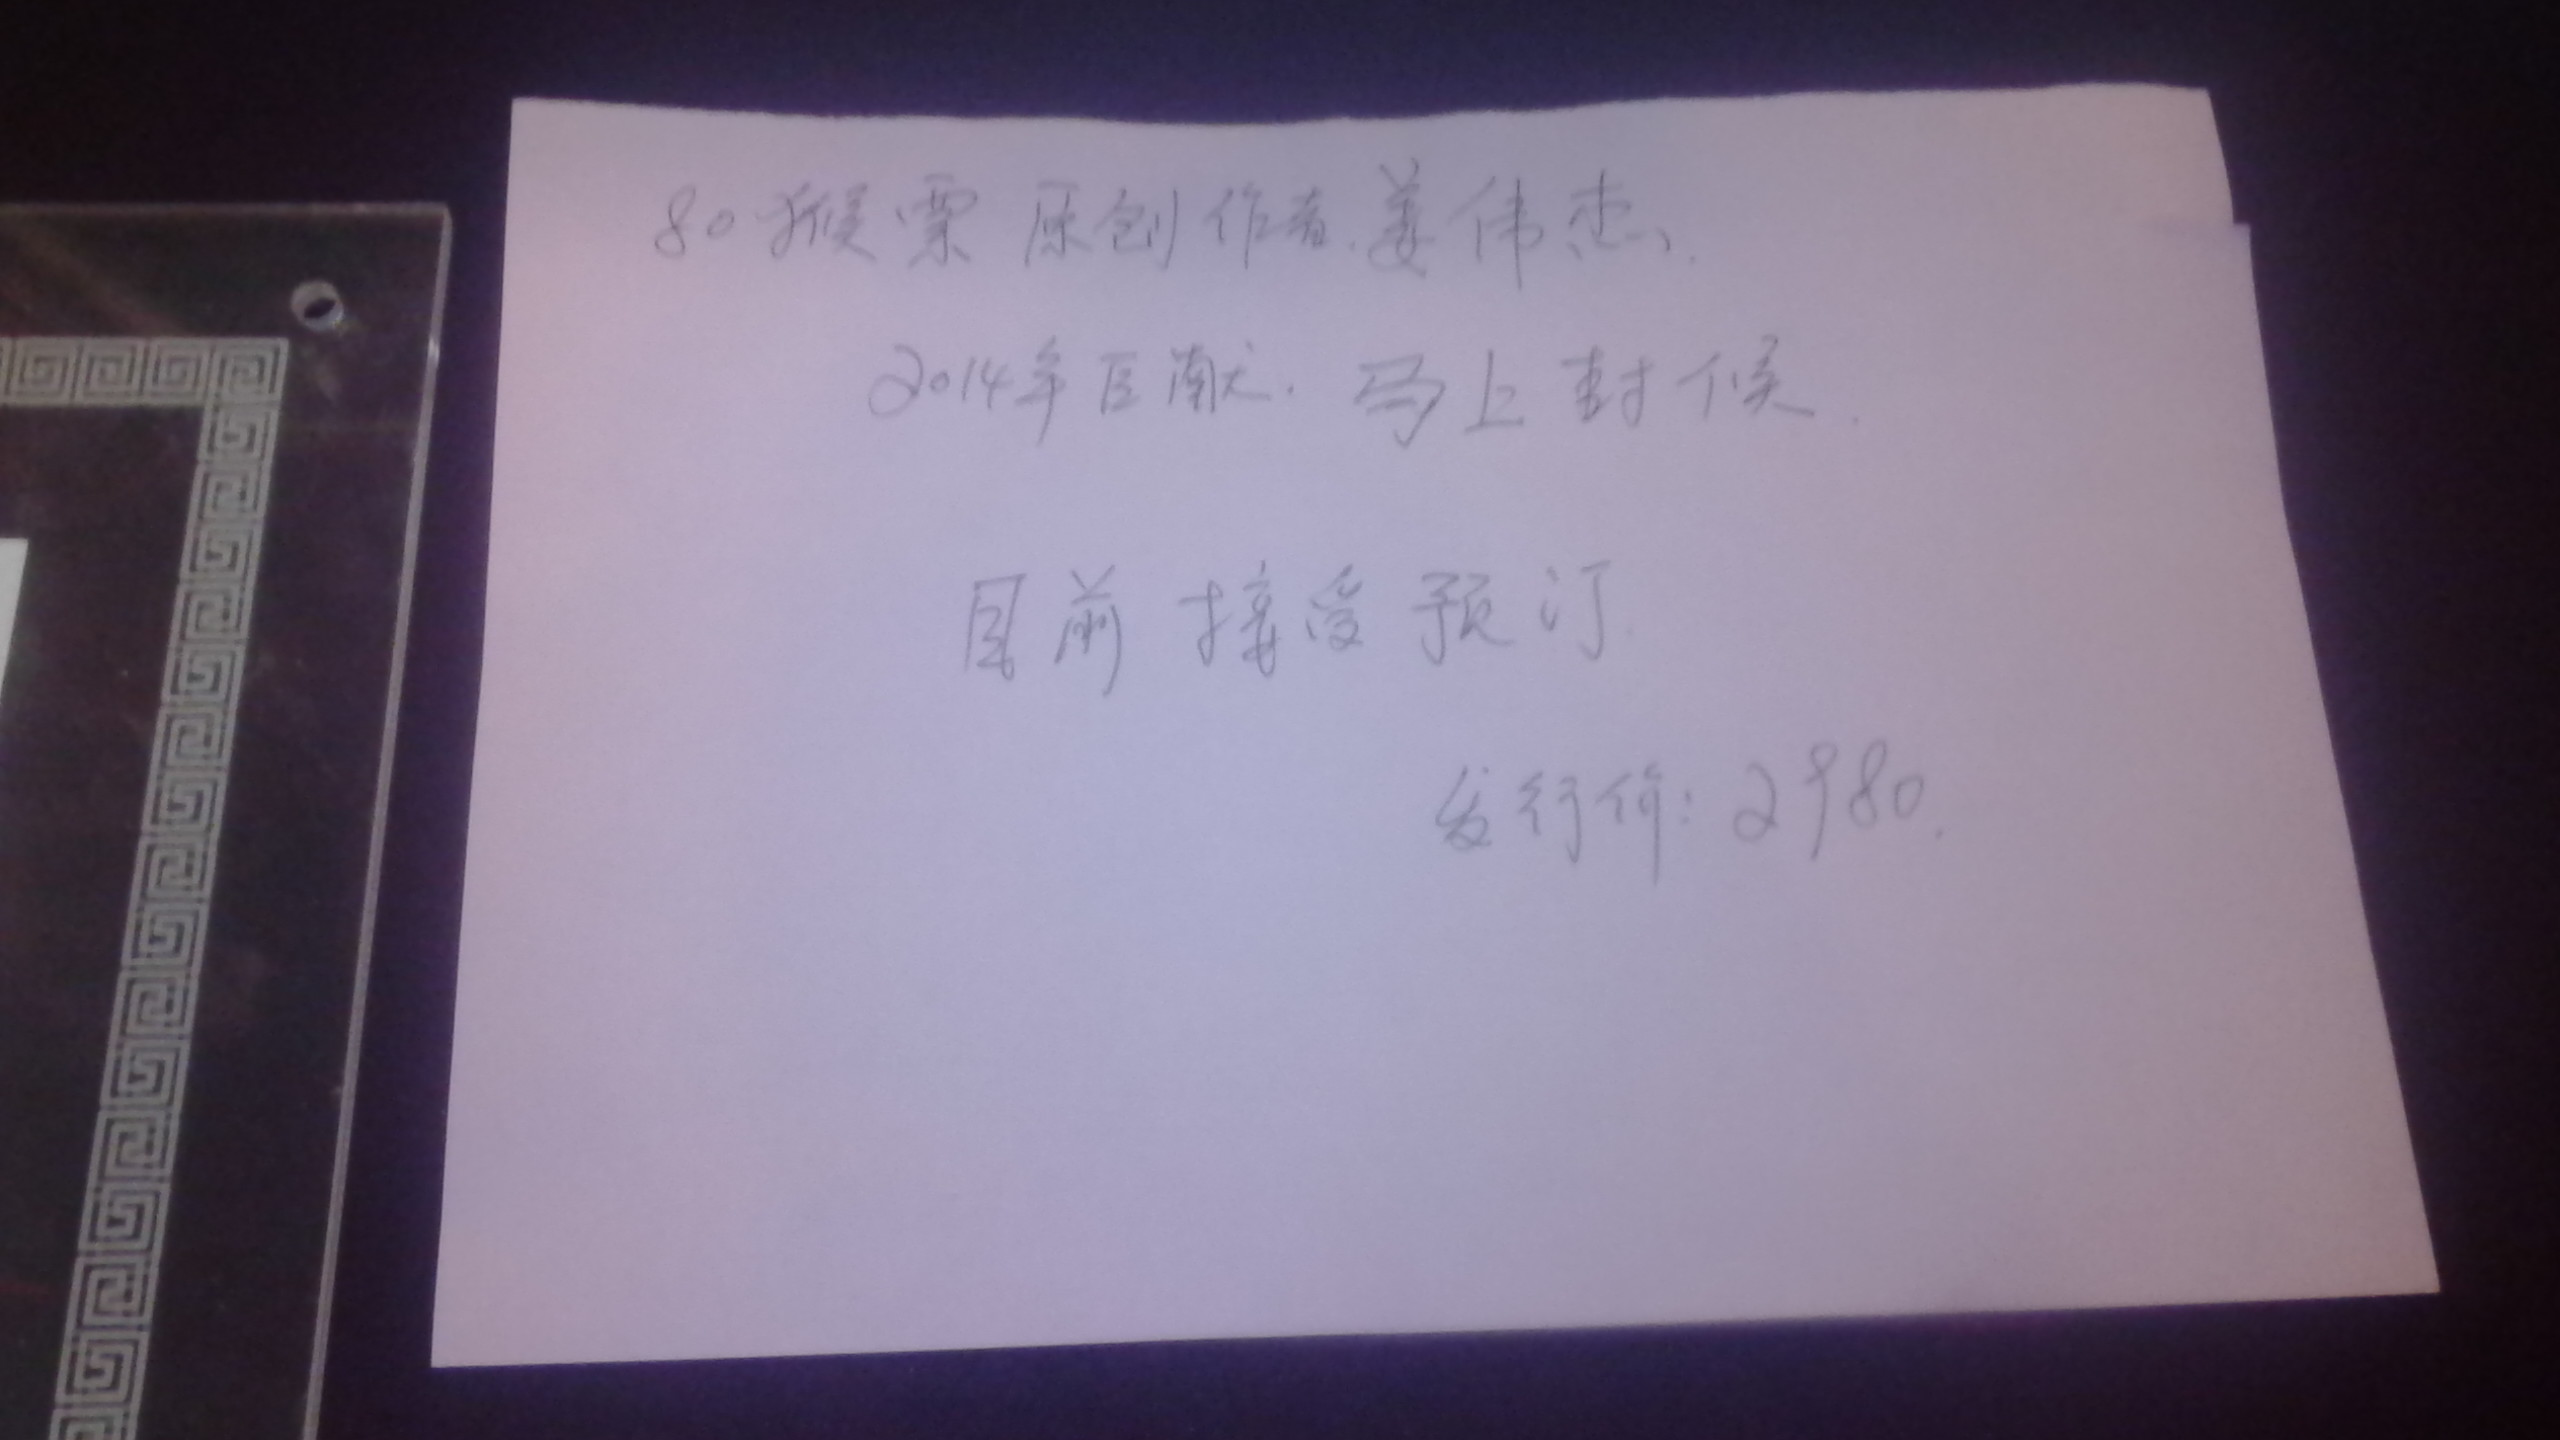 80猴票原创作者.姜伟杰.
2014年巨献.马上封候.
目前接受预订.
发行价:2980.